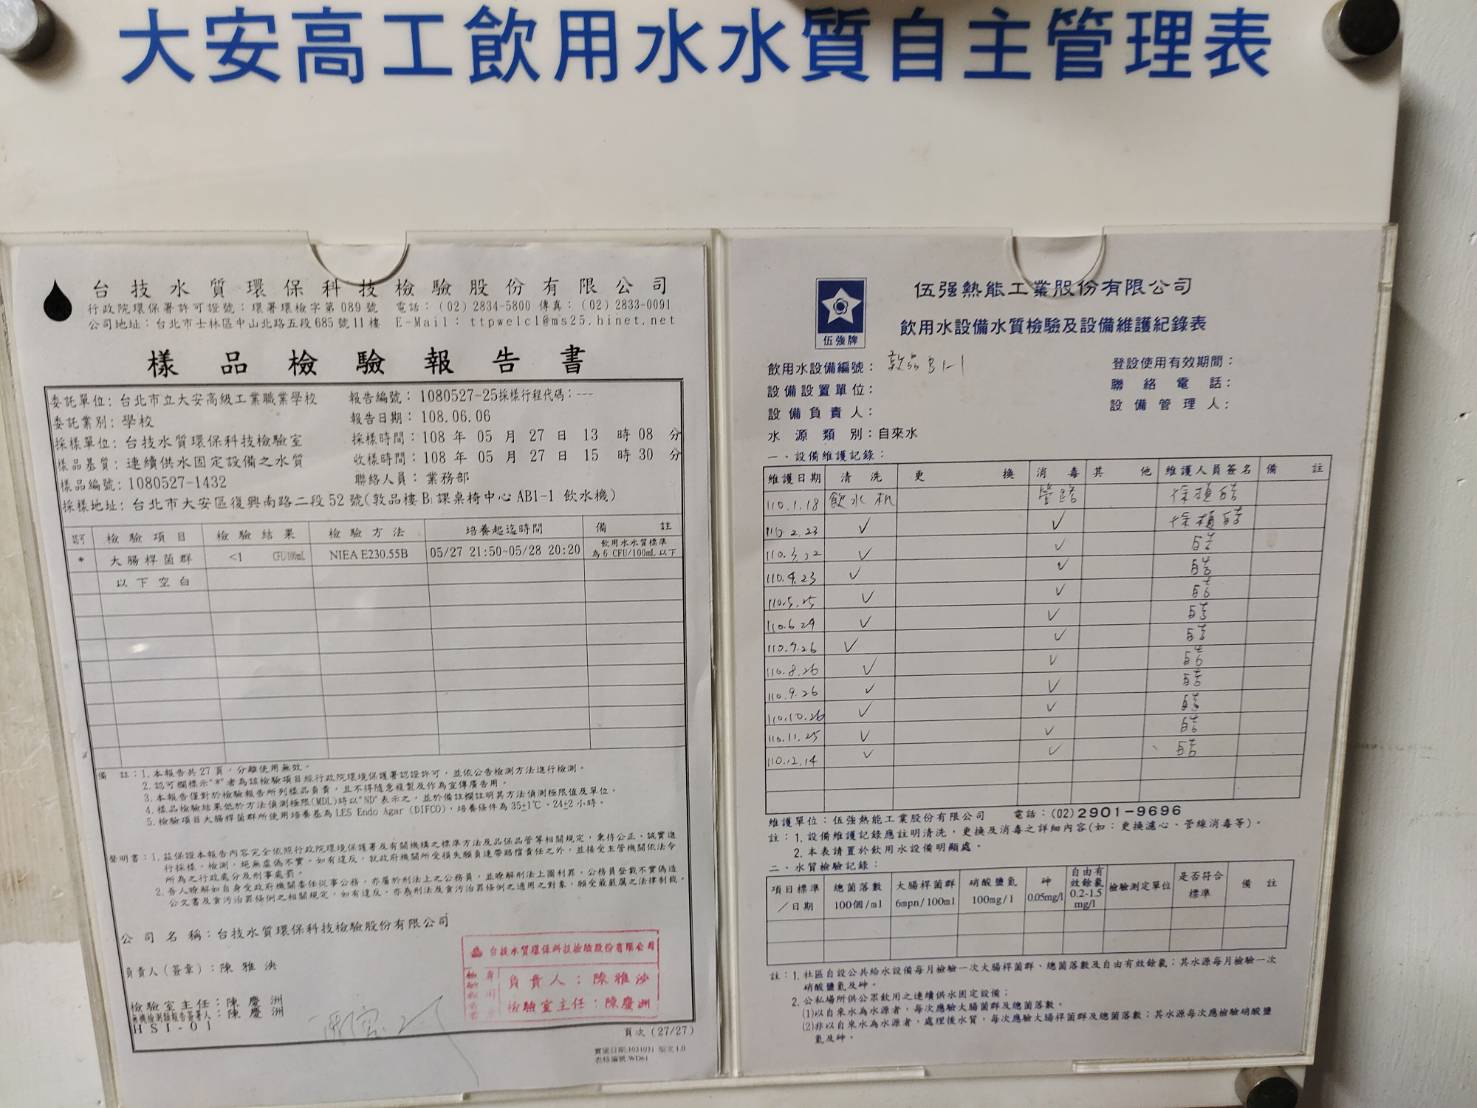 大安高工飲用水水質自主管理表
台技水質環保科技檢驗股份有限公司
行政院環保署許可證號：環署環檢字第089號 電話：(02)2834-5800 傳真：(02)2833-0091
公司地址：台北市士林區中山北路五段685號11樓 E-Mail：ttpwelcl@ms25.hinet.net
樣品檢驗報告書
委託單位：台北市立大安高級工業職業學校 報告編號：1080527-25採樣行程代碼：---
委託業別：學校 報告日期：108.06.06
採樣單位：台技水質環保科技檢驗室 採樣時間：108年05月27日13時08分
樣品基質：連續供水固定設備之水質 收樣時間：108年05月27日15時30分
樣品編號：1080527-1432 聯絡人員：業務部
採樣地址：台北市大安區復興南路二段52號(敦品樓B1課桌椅中心AB1-1 飲水機)
認可 檢驗項目 檢驗結果 檢驗方法 培養起迄時間 備註
* 大腸桿菌群 <1 CFU/100mL NIEA E230.55B 05/27 21:50~05/28 20:20 飲用水水質標準為6 CFU/100mL以下
以下空白
備註：1.本報告共27頁，分離使用無效。
2.認可欄標示"*"者為該檢驗項目經行政院環境保護署認證許可，並依公告檢測方法進行檢測。
3.本報告僅對於檢驗報告所列樣品負責，且不得隨意複製及作為宣傳廣告用。
4.樣品檢驗結果低於方法偵測極限(MDL)時以"ND"表示之，並於備註欄註明其方法偵測極限值及單位。
5.檢驗項目大腸桿菌群所使用培養基為LES Endo Agar (DIFCO)，培養條件為35±1℃、24±2小時。
聲明書：1.茲保證本報告內容完全依照行政院環境保護署及有關機構之標準方法及品保品管等相關規定，秉持公正、誠實進
行採樣、檢測，絕無虛偽不實，如有違反，就政府機關所受損失願負連帶賠償責任之外，並接受主管機關依法令
所為之行政處分及刑事處罰。
2.吾人瞭解如自身受政府機關委任從事公務，亦屬於刑法上之公務員，並瞭解刑法上圖利罪、公務員登載不實偽造
公文書及貪污治罪條例之相關規定，如有違反，亦為刑法及貪污治罪條例之適用之對象，願受最嚴厲之法律制裁。
公司名稱：台技水質環保科技檢驗股份有限公司
負責人(簽章)：陳雅泱
檢驗室主任：陳慶洲
無機檢測類報告簽署人：陳慶洲
HSI-01
台技水質環保科技檢驗股份有限公司
負責人：陳雅泱
檢驗室主任：陳慶洲
頁次(27/27)
伍強牌
伍强熱能工業股份有限公司
飲用水設備水質檢驗及設備維護紀錄表
飲用水設備編號：敦品B1-1 登設使用有效期間：
設備設置單位： 聯絡電話：
設備負責人： 設備管理人：
水源類別：自來水
一、設備維護記錄：
維護日期 清洗 更換 消毒 其他 維護人員簽名 備註
110.1.18 飲水机 管路
110.2.23 ✓ ✓
110.3.22 ✓ ✓
110.4.23 ✓ ✓
110.5.25 ✓ ✓
110.6.24 ✓ ✓
110.7.26 ✓ ✓
110.8.26 ✓ ✓
110.9.26 ✓ ✓
110.10.26 ✓ ✓
110.11.25 ✓ ✓
110.12.14 ✓ ✓
維護單位：伍強熱能工業股份有限公司 電話：(02)2901-9696
註：1.設備維護記錄應註明清洗、更換及消毒之詳細內容(如：更換濾心、管線消毒等)。
2.本表請置於飲用水設備明顯處。
二、水質檢驗記錄：
項目標準／日期 總菌落數 100個/ml 大腸桿菌群 6mpn/100ml 硝酸鹽氮 100mg/l 砷 0.05mg/l 自由有效餘氯 0.2-1.5 mg/l 檢驗測定單位 是否符合標準 備註
註：1.社區自設公共給水設備每月檢驗一次大腸桿菌群、總菌落數及自由有效餘氯；其水源每月檢驗一次
硝酸鹽氮及砷。
2.公私場所供公眾飲用之連續供水固定設備：
(1)以自來水為水源者，每次應驗大腸桿菌群及總菌落數。
(2)非以自來水為水源者，處理後水質，每次應驗大腸桿菌群及總菌落數；其水源每次應檢驗硝酸鹽
氮及砷。